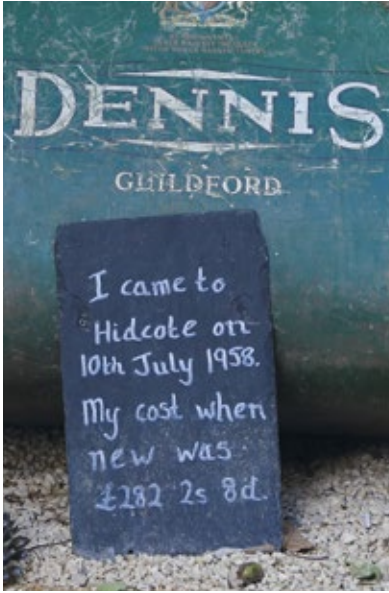 DENNIS
GUILDFORD
I came to
Hidcote on
10th July 1958.
My cost when
new was
£282 2s 8d.